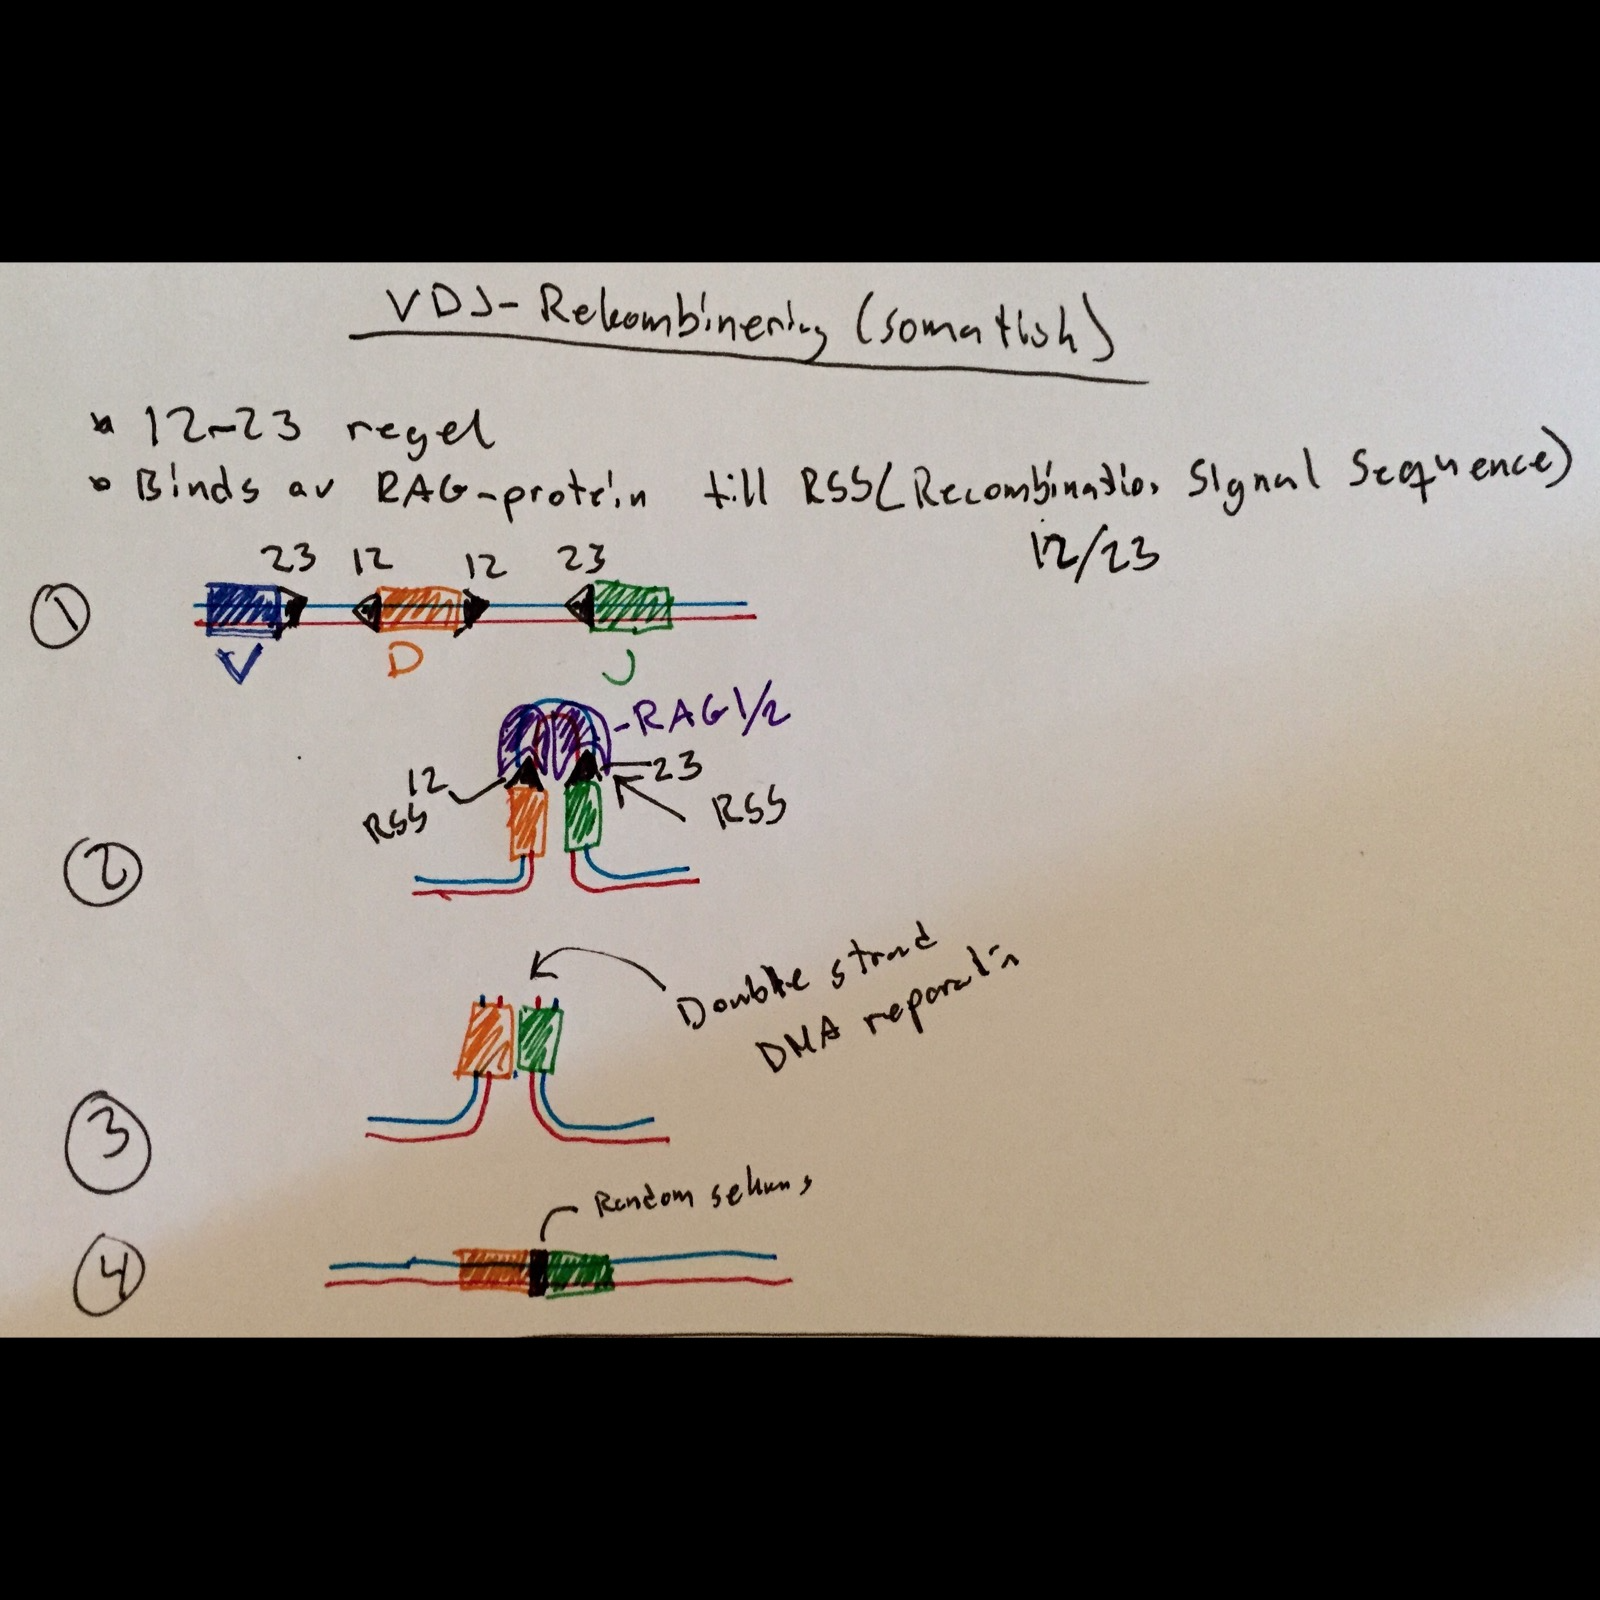 VDJ-Rekombinering (somatisk)
* 12-23 regel
* Binds av RAG-protein till RSS (Recombination Signal Sequence)
12/23
23 12 12 23
1
V D J
-RAG1/2
12 23
RSS RSS
2
Double strand
DNA reparatin
3
Random sekvens
4